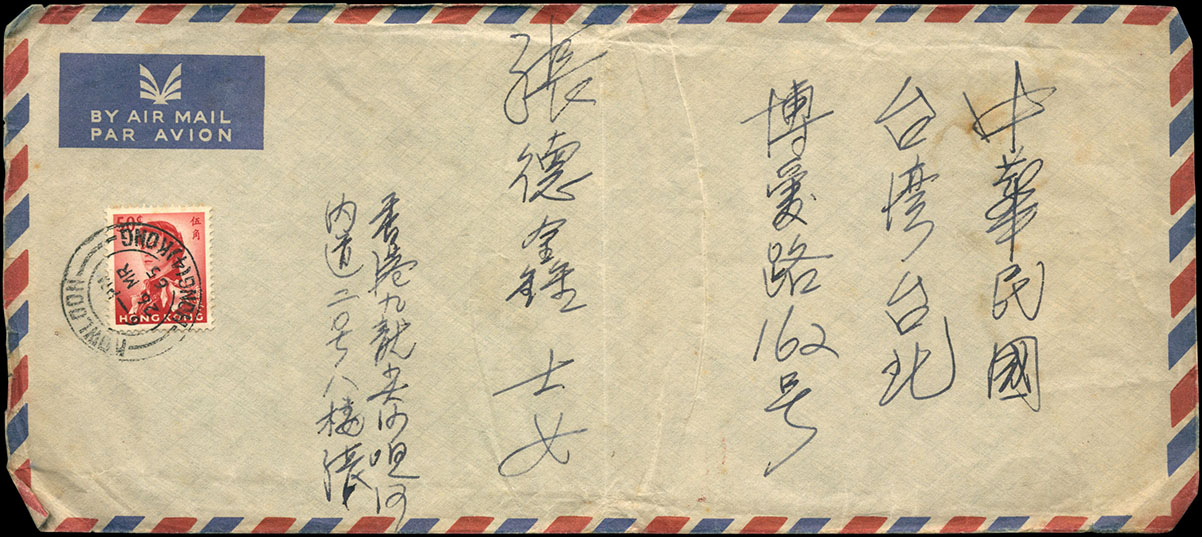 中華民國
台灣台北
博愛路162号
張德金鍾 士女
香港九龍尖沙咀河
內道二号八樓張
BY AIR MAIL
PAR AVION
50¢
伍角
HONG KONG
KOWLOON
HONG KONG
26 MR
65